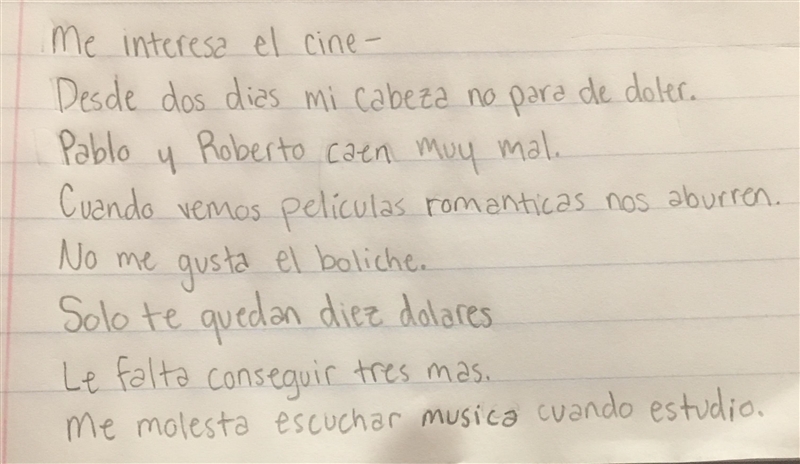 Me interesa el cine-
Desde dos dias mi cabeza no para de doler.
Pablo y Roberto caen muy mal.
Cuando vemos peliculas romanticas nos aburren.
No me gusta el boliche.
Solo te quedan diez dolares
Le falta conseguir tres mas.
Me molesta escuchar musica cuando estudio.